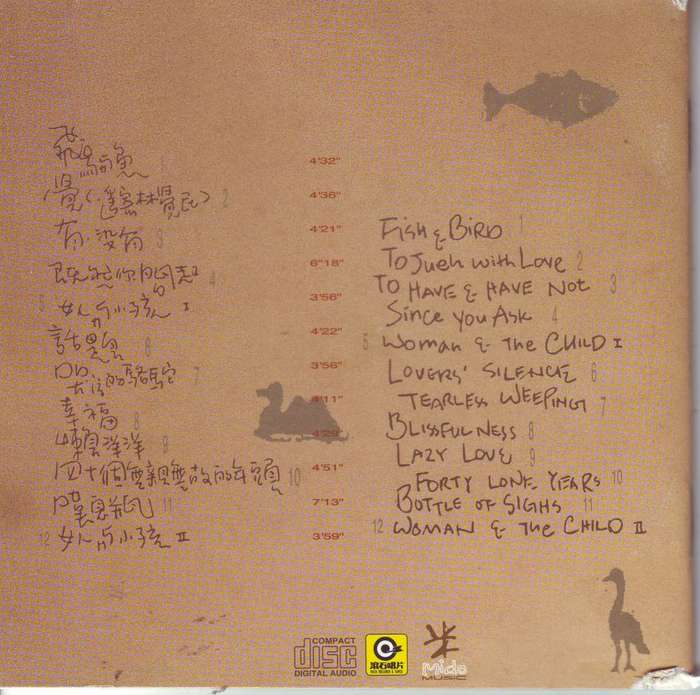 飛鳥與魚 1
覺(遙寄林覺民) 2
有沒有 3
既然你問起 4
5 女人與小孩 I
6
哭泣的駱駝 7
幸福 8
懶洋洋 9
四十個無親無故的年頭 10
嘆息瓶 11
12 女人與小孩 II
4'32"
4'36"
4'21"
6"18"
3'56"
4'22"
3'56"
4'11"
4'29"
4'51"
7'13"
3'59"
Fish & Bird 1
To Jueh with Love 2
To Have & Have Not 3
Since You Ask 4
5 Woman & the Child I
Lovers' Silence 6
Tearless Weeping 7
Blissfulness 8
Lazy Love 9
Forty Lone Years 10
Bottle of Sighs 11
12 Woman & the Child II
COMPACT
disc
DIGITAL AUDIO
滾石唱片
Mida
MUSIC